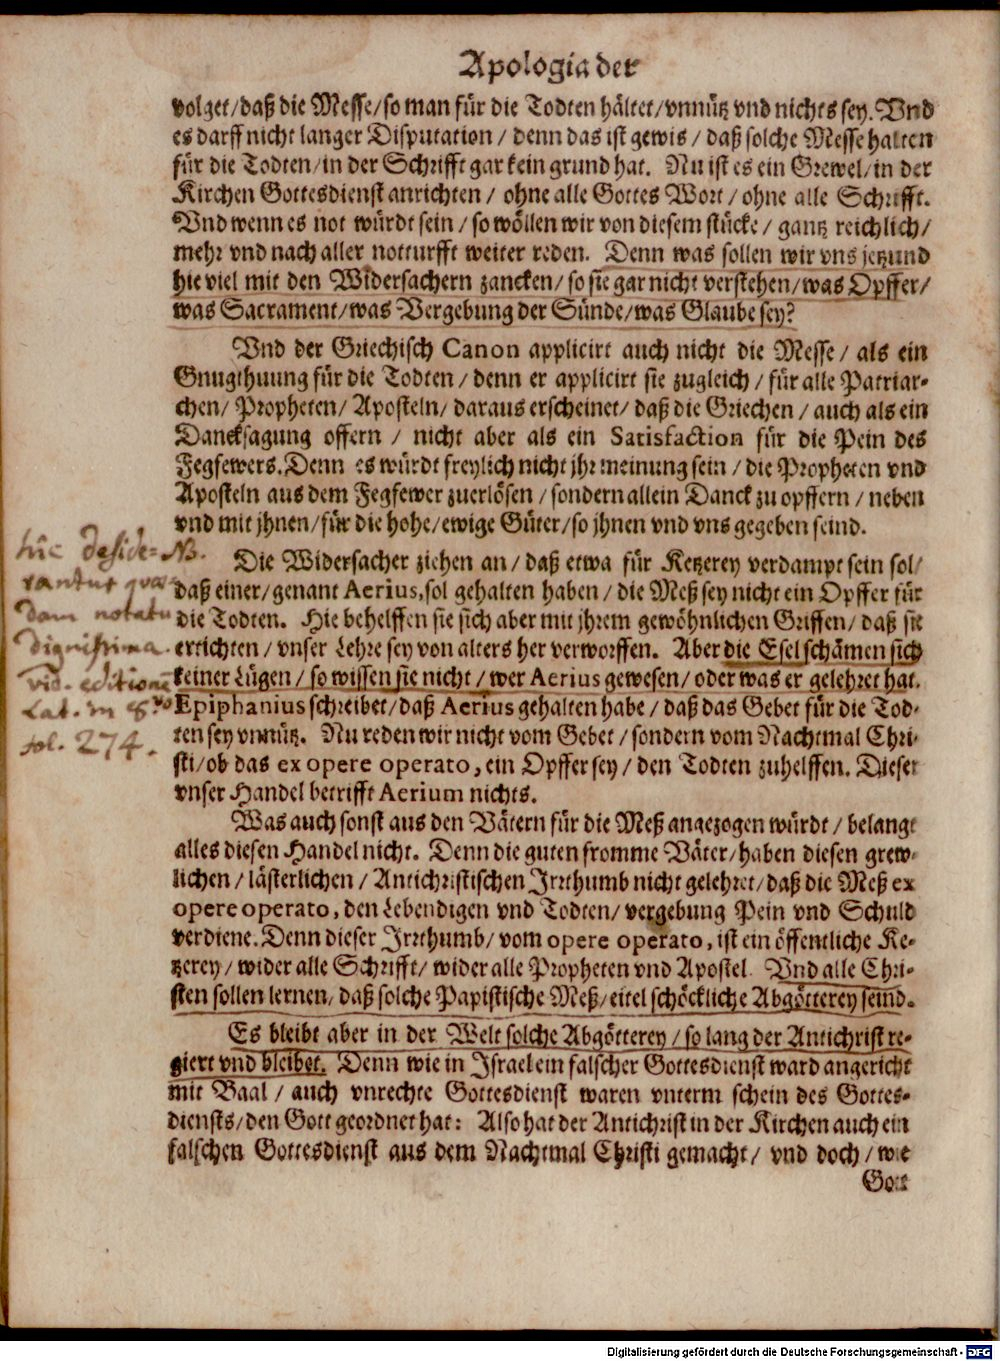 Apologia der
volget/daß die Messe/so man für die Todten hältet/vnnütz vnd nichts sey. Vnd
es darff nicht langer Disputation / denn das ist gewis / daß solche Messe halten
für die Todten/in der Schrifft gar kein grund hat. Nu ist es ein Grewel/in der
Kirchen Gottesdienst anrichten / ohne alle Gottes Wort / ohne alle Schrifft.
Vnd wenn es not würdt sein / so wöllen wir von diesem stücke / gantz reichlich/
mehr vnd nach aller notturfft weiter reden. Denn was sollen wir vns jetzund
hie viel mit den Widersachern zancken/ so sie gar nicht verstehen/was Opffer/
was Sacrament/was Vergebung der Sünde/was Glaube sey?
Vnd der Griechisch Canon applicirt auch nicht die Messe / als ein
Gnugthuung für die Todten / denn er applicirt sie zugleich / für alle Patriar-
chen/ Propheten/ Aposteln/ daraus erscheinet/ daß die Griechen / auch als ein
Dancksagung offern / nicht aber als ein Satisfaction für die Pein des
Fegfewers. Denn es würdt freylich nicht jhr meinung sein / die Propheten vnd
Aposteln aus dem Fegfewer zuerlösen / sondern allein Danck zu opffern / neben
vnd mit jhnen/für die hohe/ewige Güter/so jhnen vnd vns gegeben seind.
hîc deside- NB.
rantur quæ-
dam notatu
dignissima.
vid. editionē
Lat. in 8vo
fol. 274.
Die Widersacher ziehen an / daß etwa für Ketzerey verdampt sein sol/
daß einer/genant Aerius,sol gehalten haben / die Meß sey nicht ein Opffer für
die Todten. Hie behelffen sie sich aber mit jhrem gewöhnlichen Griffen/ daß sie
ertichten / vnser Lehre sey von alters her verworffen. Aber die Esel schämen sich
keiner Lügen / so wissen sie nicht / wer Aerius gewesen/ oder was er gelehret hat.
Epiphanius schreibet/daß Aerius gehalten habe / daß das Gebet für die Tod-
ten sey vnnütz. Nu reden wir nicht vom Gebet / sondern vom Nachtmal Chri-
sti/ob das ex opere operato, ein Opffer sey / den Todten zuhelffen. Dieser
vnser Handel betrifft Aerium nichts.
Was auch sonst aus den Vätern für die Meß angezogen würdt / belangt
alles diesen Handel nicht. Denn die guten fromme Väter/haben diesen grew-
lichen / lästerlichen / Antichristischen Irrthumb nicht gelehret/daß die Meß ex
opere operato, den Lebendigen vnd Todten/ vergebung Pein vnd Schuld
verdiene. Denn dieser Irrthumb/ vom opere operato, ist ein öffentliche Ke-
tzerey / wider alle Schrifft/ wider alle Propheten vnd Apostel. Vnd alle Chri-
sten sollen lernen, daß solche Papistische Meß/eitel schöckliche Abgötterey seind.
Es bleibt aber in der Welt solche Abgötterey / so lang der Antichrist re-
giert vnd bleibet. Denn wie in Israel ein falscher Gottesdienst ward angericht
mit Baal / auch vnrechte Gottesdienst waren vnterm schein des Gottes-
diensts/den Gott geordnet hat: Also hat der Antichrist in der Kirchen auch ein
falschen Gottesdienst aus dem Nachtmal Christi gemacht/ vnd doch / wie
Gott
Digitalisierung gefördert durch die Deutsche Forschungsgemeinschaft - DFG